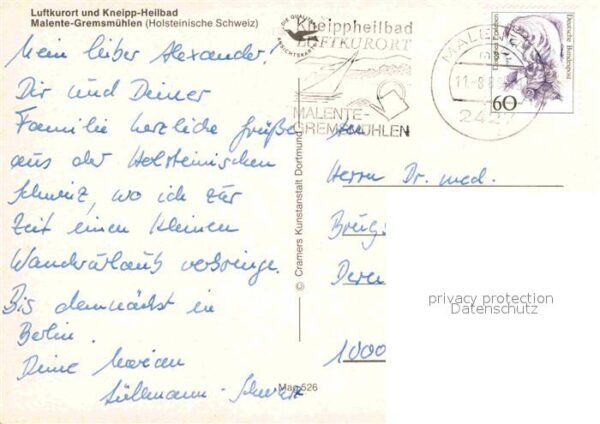 Luftkurort und Kneipp-Heilbad
Malente-Gremsmühlen (Holsteinische Schweiz)
Mein lieber Alexander!
Dir und Deiner
Familie herzliche Grüße
aus der Holsteinischen
Schweiz, wo ich zur
Zeit einen kleinen
Wanderurlaub verbringe.
Bis demnächst in
Berlin.
Deine Marian
Süllmann-
© Cramers Kunstanstalt Dortmund
Mag 526
Kneippheilbad
LUFTKURORT
MALENTE-
GREMSMÜHLEN
MALENTE
2427
Deutsche Bundespost
60
Herrn Dr. med.
1000
privacy protection
Datenschutz